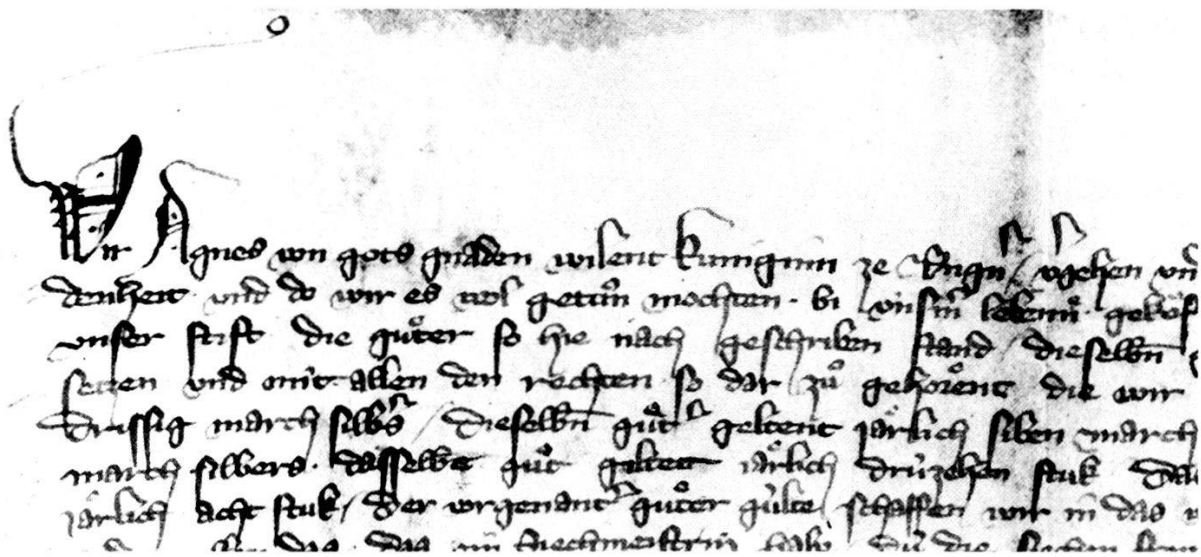 Wir Agnes von gots gnaden wilent kuniginn ze Vngern / v̾gehen vnd
denheit vnd do wir es wol getůn mochten · bi vnserm lebenne gekoͮf
vnser stift die guͤter so hie nach geschriben stand / dieselbn̄
setzen vnd mit allen den rechten so dar zuͦ gehoͤrent die wir
drissig march silb's / dieselbn̄ guͤt' geltent jaͤrlich siben march
march silbers · dasselbe guͦt giltet jaͤrlich drúzehen stuk
jaͤrlich acht stuk / der vorgenant' guͤter gúlte / schaffen wir in das